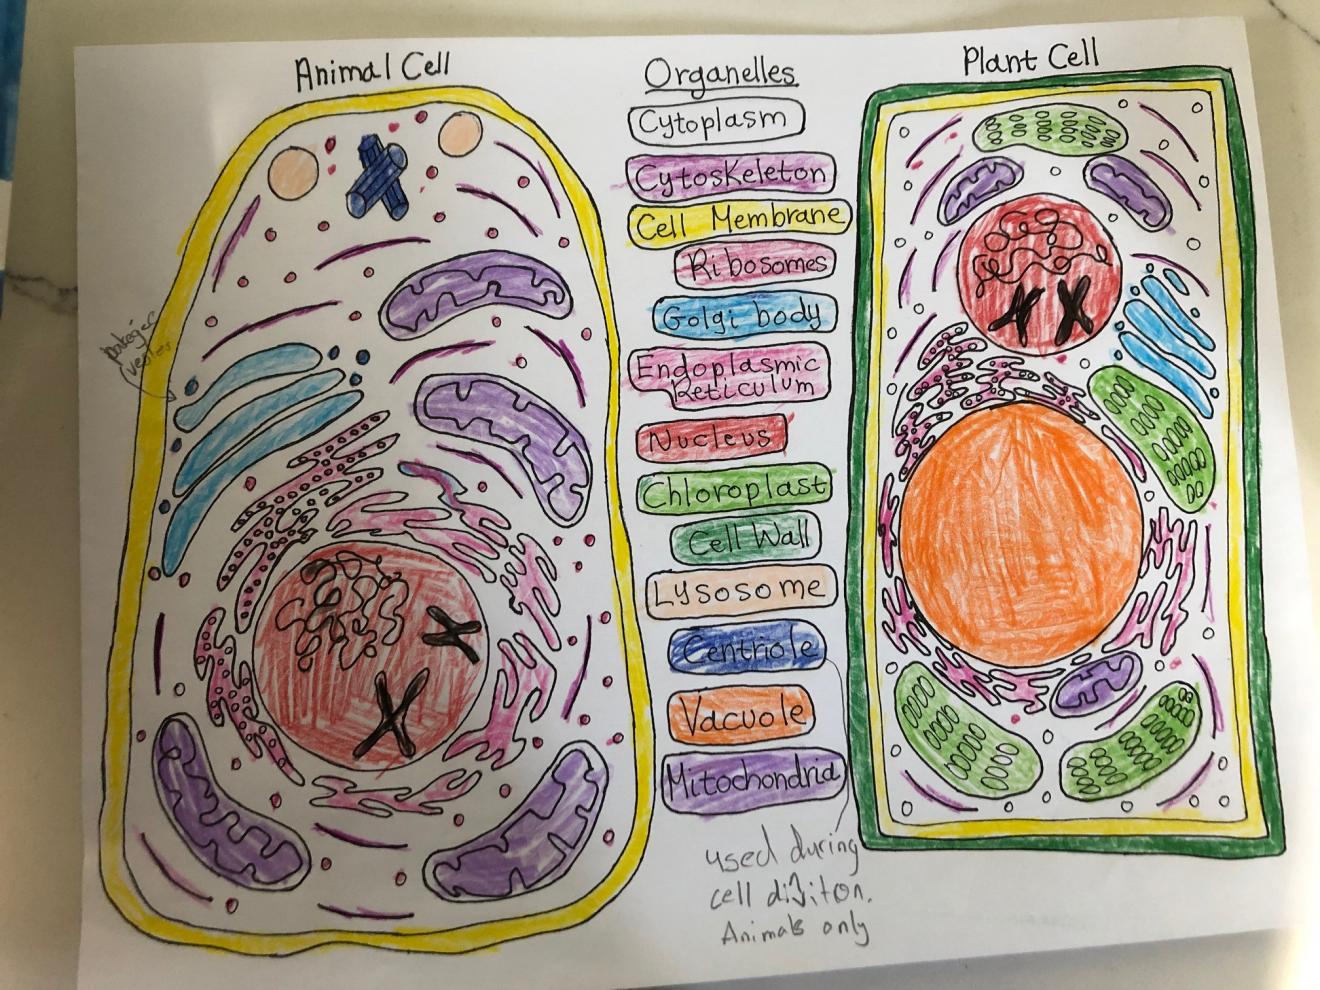 Animal Cell
Organelles
Plant Cell
Cytoplasm
Cytoskeleton
Cell Membrane
Ribosomes
Golgi body
Endoplasmic
Reticulum
Nucleus
Chloroplast
Cell Wall
Lysosome
Centriole
Vacuole
Mitochondria
used during
cell divition.
Animals only